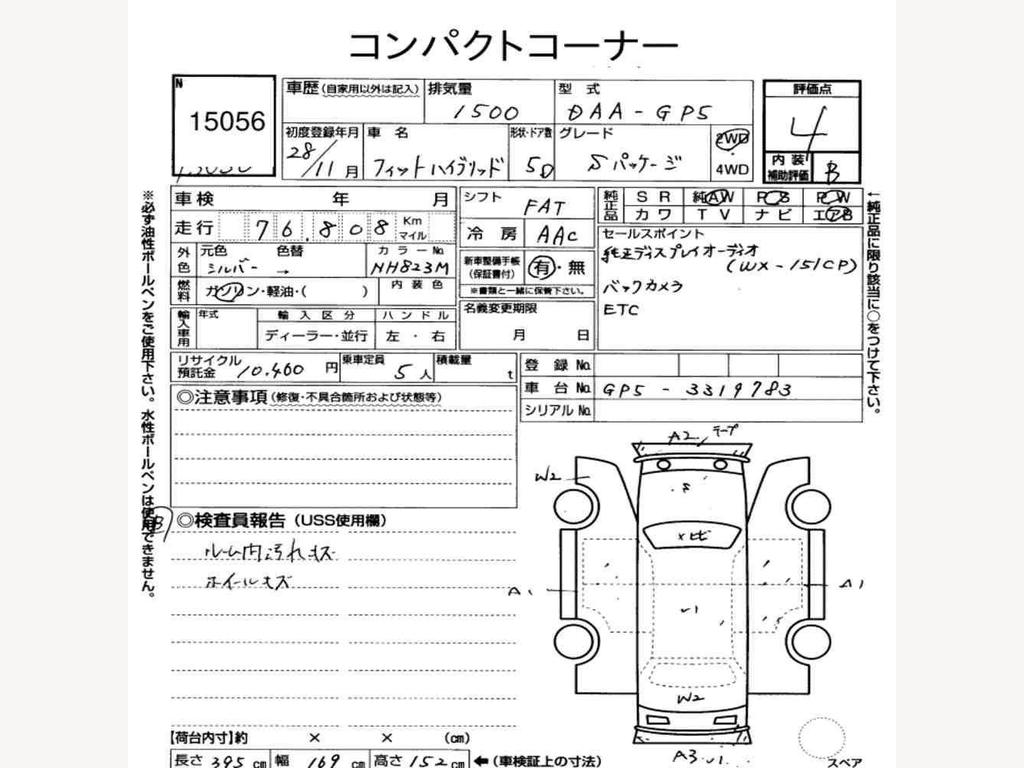 コンパクトコーナー
N
15056
車歴(自家用以外は記入)
排気量
1500
型 式
DAA-GP5
評価点
4
初度登録年月
28/11月
車 名
フィットハイブリッド
形状・ドア数
5D
グレード
Sパッケージ
2WD
・
4WD
内 装
補助評価
B
車検 年 月
走行 76,808 Km マイル
外色
元色 色替
シルバー →
カラーNo
NH823M
燃料
ガソリン・軽油・( )
内 装 色
輸入車用
年式
輸 入 区 分
ディーラー・並行
ハ ン ド ル
左 ・ 右
シフト
FAT
冷 房
AAC
新車整備手帳
(保証書付)
有・無
※書類と一緒に保管下さい。
名義変更期限
月 日
純正品
S R
純AW
P S
P W
カ ワ
T V
ナ ビ
エアB
セールスポイント
純正ディスプレイオーディオ
(WX-151CP)
バックカメラ
ETC
リサイクル
預託金
10.460 円
乗車定員
5人
積載量
t
登 録 No
車 台 No
GP5 - 3319783
シリアル No
◎注意事項(修復・不具合箇所および状態等)
◎検査員報告(USS使用欄)
ルーム内汚れキズ
ホイールキズ
※必ず油性ボールペンをご使用下さい。水性ボールペンは使用できません。
←純正品に限り該当に○をつけて下さい。
A2
テープ
W2
A1
A1
W2
A3
スペア
【荷台内寸】約 × × (cm)
長さ 395 cm
幅 169 cm
高さ 152 cm
←(車検証上の寸法)